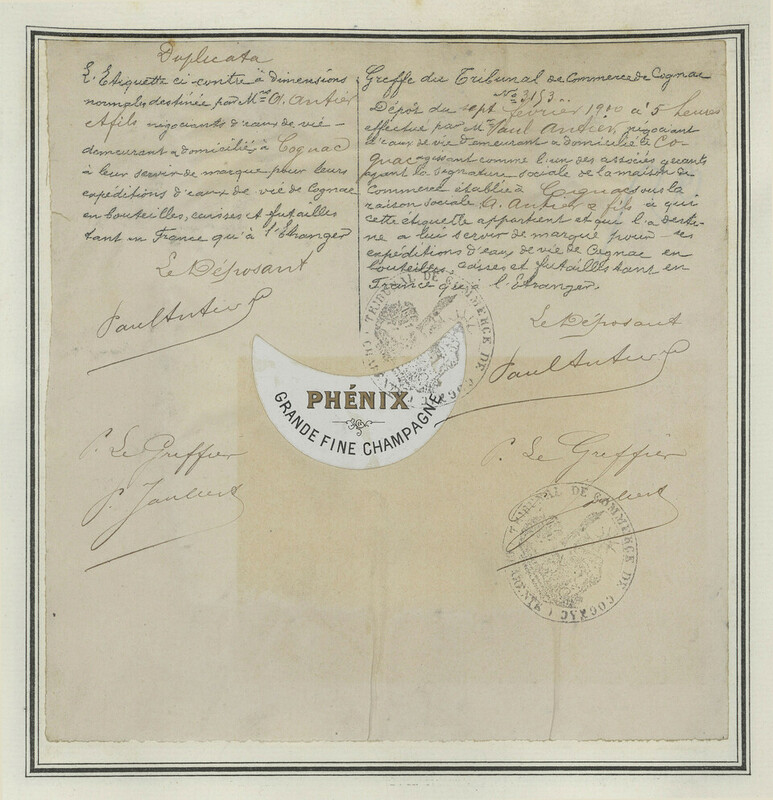 Duplicata
L'Etiquette ci-contre à dimensions
normales destinée par Mrs A. Antier
& fils négociants d'eaux de vie –
demeurant & domiciliés à Cognac
à leur servir de marque pour leurs
expéditions d'eaux de vie de Cognac
en bouteilles, caisses et futailles
tant en France qu'à l'Etranger
Le Déposant
Paul Antier
P. Le Greffier
P. Joubert
Greffe du Tribunal de Commerce de Cognac
No 3153
Dépôt du sept février 1900 à 5 heures
effectué par Mr Paul Antier négociant
d'eaux de vie demeurant & domicilié à Co-
gnac agissant comme l'un des associés gérants
ayant la signature sociale de la maison de
Commerce établie à Cognac sous la
raison sociale A. Antier & fils à qui
cette étiquette appartient et qui l'a desti-
né à lui servir de marque pour ses
expéditions d'eaux de vie de Cognac en
bouteilles caisses et futailles tant en
France qu'à l'Etranger.
Le Déposant
Paul Antier
TRIBUNAL DE COMMERCE DE COGNAC
PHÉNIX
GRANDE FINE CHAMPAGNE
P. Le Greffier
TRIBUNAL DE COMMERCE DE COGNAC (CHARENTE)